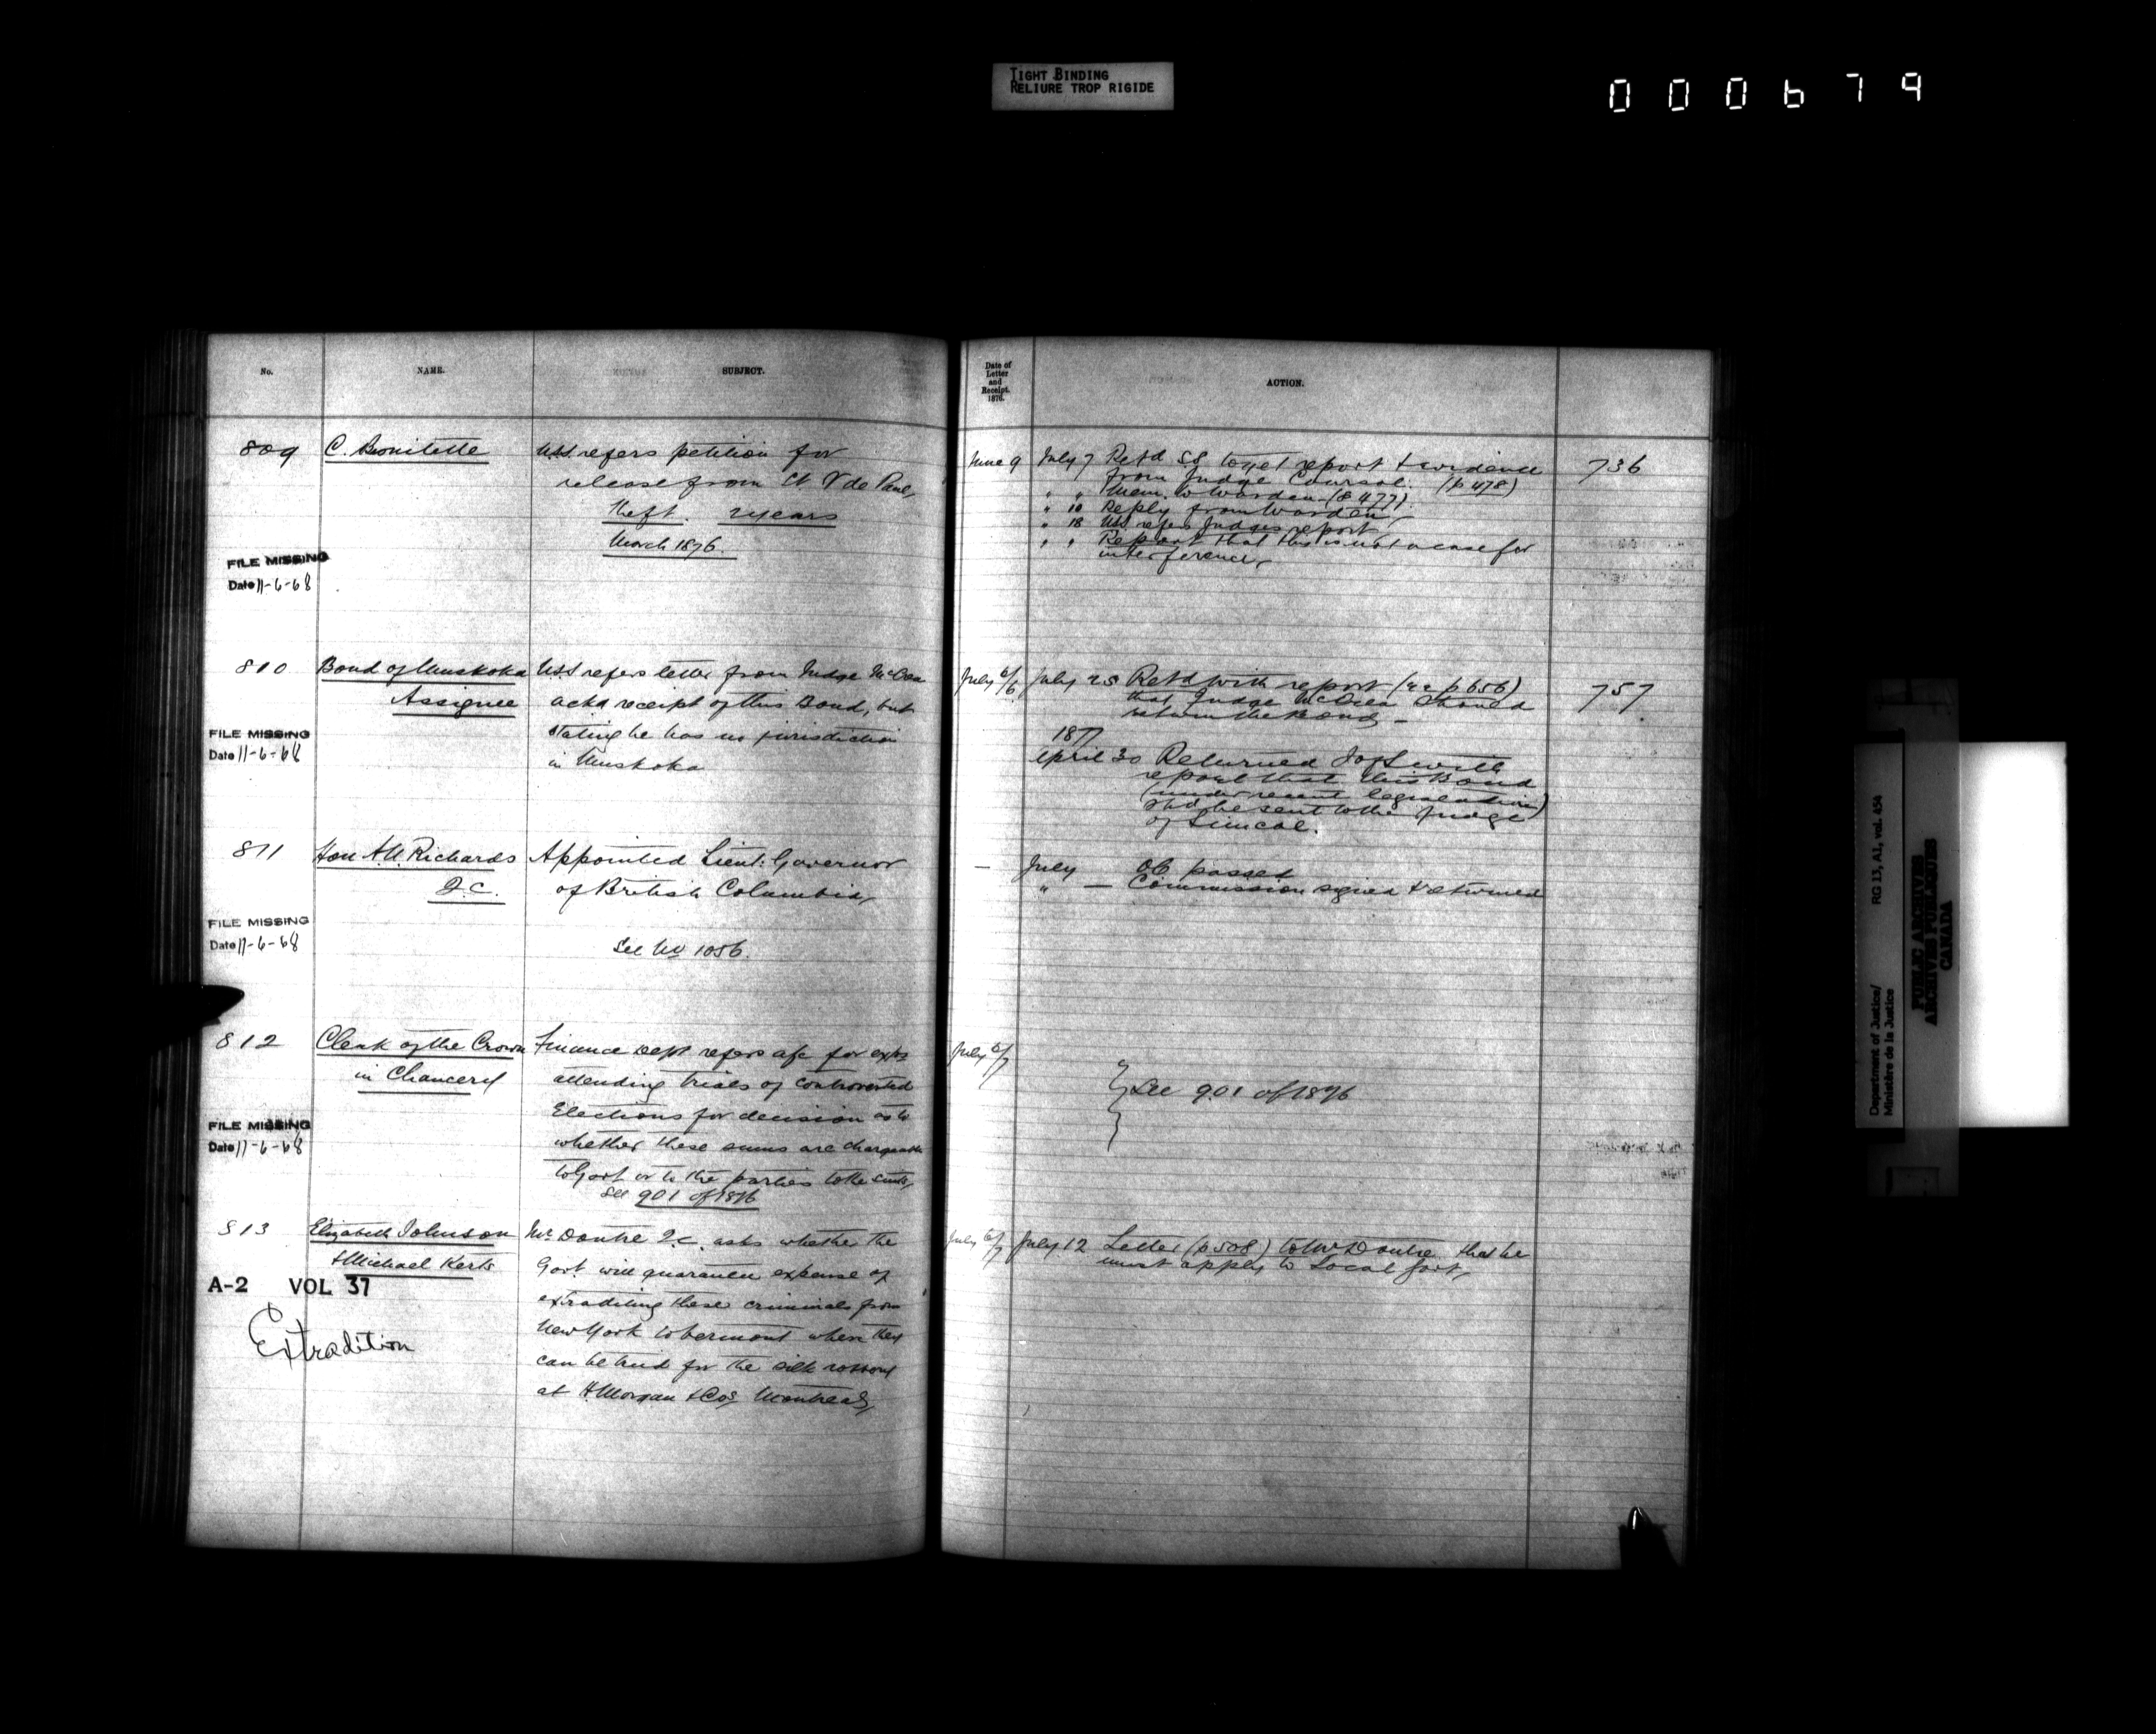 TIGHT BINDING
RELIURE TROP RIGIDE
000679
No. NAME. SUBJECT.
809 C. Bonitette USS refers petition for
release from St V de Paul,
theft. 2 years
March 1876.
FILE MISSING
Date 11-6-68
810 Bond of Muskoka USS refers letter from Judge McCrea
Assignee ackg receipt of this Bond, but
stating he has no jurisdiction
in Muskoka
FILE MISSING
Date 11-6-68
811 Hon A.N. Richards Appointed Lieut: Governor
Q.C. of British Columbia,
See No 1056.
FILE MISSING
Date 11-6-68
812 Clerk of the Crown Finance Dept refers a/c for exps
in Chancery attending trials of controverted
Elections for decision as to
whether these sums are chargeable
to Govt or to the parties to the suits,
See 901 of 1876
FILE MISSING
Date 11-6-68
813 Elizabeth Johnson Mr Doutre Q.C. asks whether the
& Michael Kerts Govt will guarantee expense of
extraditing these criminals from
New York to Vermont where they
can be tried for the silk robbery
at H Morgan & Cos Montreal,
A-2 VOL 37
Extradition
Date of
Letter
and
Receipt.
1876.
ACTION.
June 9 July 7 Retd SS to get report & evidence 736
from Judge Coursol. (p 478)
" " Mem. to Warden (p 477)
" 10 Reply from Warden,
" 18 USS refers Judges report
" " Report that this is not a case for
interference,
July 6/6 July 25 Retd with report (p 656) 757
that Judge McCrea should
return the Bond –
1877
April 30 Returned SofS with
report that this Bond
(under recent legislation)
shd be sent to the Judge
of Simcoe.
– July OC passed
" — Commission signed & returned
July 6/7
See 901 of 1876
July 6/7 July 12 Letter (p 508) to Mr Doutre that he
must apply to Local Govt,
Department of Justice/
Ministère de la Justice
RG 13, A1, vol. 454
PUBLIC ARCHIVES
ARCHIVES PUBLIQUES
CANADA